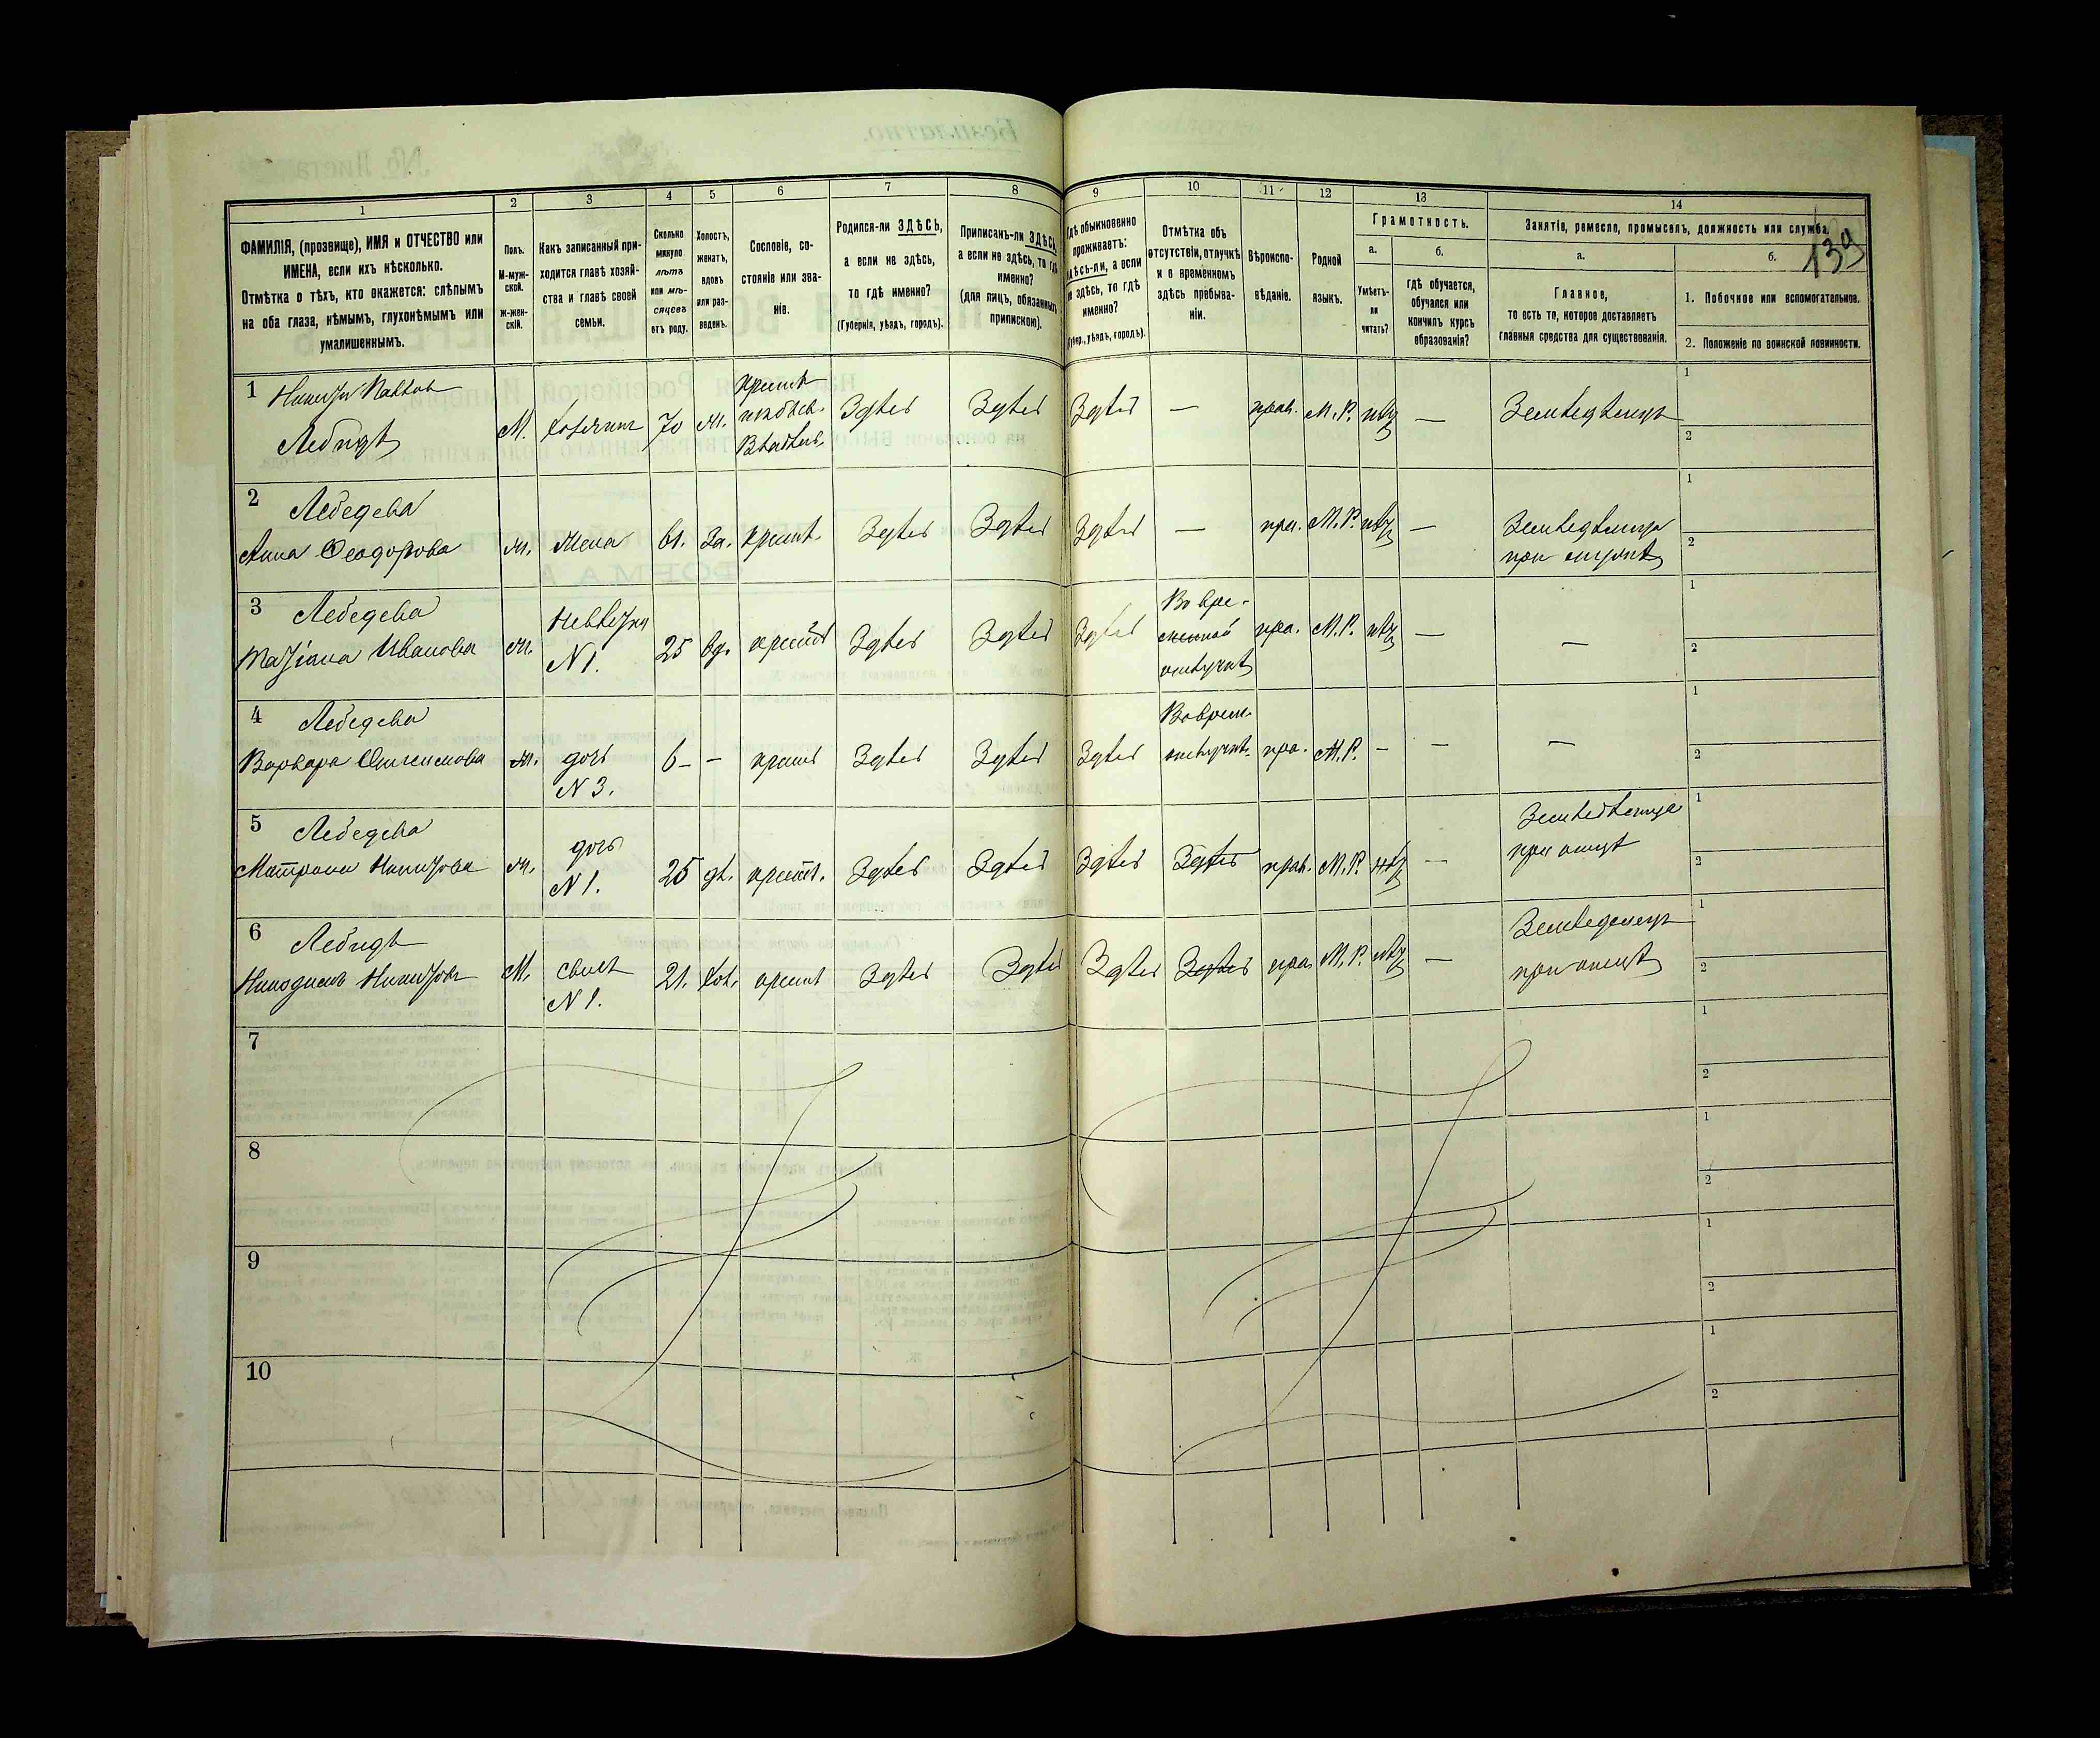 139
1
2
3
4
5
6
7
8
9
10
11
12
13
14
ФАМИЛІЯ, (прозвище), ИМЯ и ОТЧЕСТВО или
ИМЕНА, если ихъ нѣсколько.
Отмѣтка о тѣхъ, кто окажется: слѣпымъ
на оба глаза, нѣмымъ, глухонѣмымъ или
умалишеннымъ.
Полъ.
М-муж-
ской.
Ж-жен-
скій.
Какъ записанный при-
ходится главѣ хозяй-
ства и главѣ своей
семьи.
Сколько
минуло
лѣтъ
или мѣ-
сяцевъ
отъ роду.
Холостъ,
женатъ,
вдовъ
или раз-
веденъ.
Сословіе, со-
стояніе или зва-
ніе.
Родился-ли ЗДѢСЬ,
а если не здѣсь,
то гдѣ именно?
(Губернія, уѣздъ, городъ).
Приписанъ-ли ЗДѢСЬ,
а если не здѣсь, то гдѣ
именно?
(для лицъ, обязанныхъ
припискою).
Гдѣ обыкновенно
проживаетъ:
здѣсь-ли, а если
не здѣсь, то гдѣ
именно?
(Губер., уѣздъ, городъ).
Отмѣтка объ
отсутствіи, отлучкѣ
и о временномъ
здѣсь пребыва-
ніи.
Вѣроиспо-
вѣданіе.
Родной
языкъ.
Грамотность.
а.
Умѣетъ-
ли
читать?
б.
гдѣ обучается,
обучался или
кончилъ курсъ
образованія?
Занятія, ремесло, промыселъ, должность или служба.
а.
Главное,
то есть то, которое доставляетъ
главныя средства для существованія.
б.
1. Побочное или вспомогательное.
2. Положеніе по воинской повинности.
1 Никита Павлов
Лебидь
М. хозяинъ 70 ж. крест. Владѣль. Здѣсь Здѣсь Здѣсь — прав. М.Р. нѣт — Земледѣлецъ
2 Лебедева
Анна Ѳеодорова ж. жена 61. За. крест. Здѣсь Здѣсь Здѣсь — пра. М.Р. нѣт — Земледѣлица
при
3 Лебедева
Татіана Иванова ж. невѣстка
N 1. 25 вд. крест Здѣсь Здѣсь Здѣсь Во вре-
менной
отлучкѣ пра. М.Р. нѣт — —
4 Лебедева
Варвара ж. дочь
N 3. 6 – – крест Здѣсь Здѣсь Здѣсь Во врем.
отлучкѣ. пра. М.Р. – — —
5 Лебедева
Матрона Никитова ж. дочь
N 1. 25 дѣ. крест. Здѣсь Здѣсь Здѣсь Здѣсь прав. М.Р. нѣт — Земледѣлица
при отцѣ
6 Лебидь
Никодимъ Никитовъ М. сынъ
N 1. 21. хол. крест Здѣсь Здѣсь Здѣсь Здѣсь пра М.Р. нѣт — Земледелецъ
при отцѣ
7
8
9
10